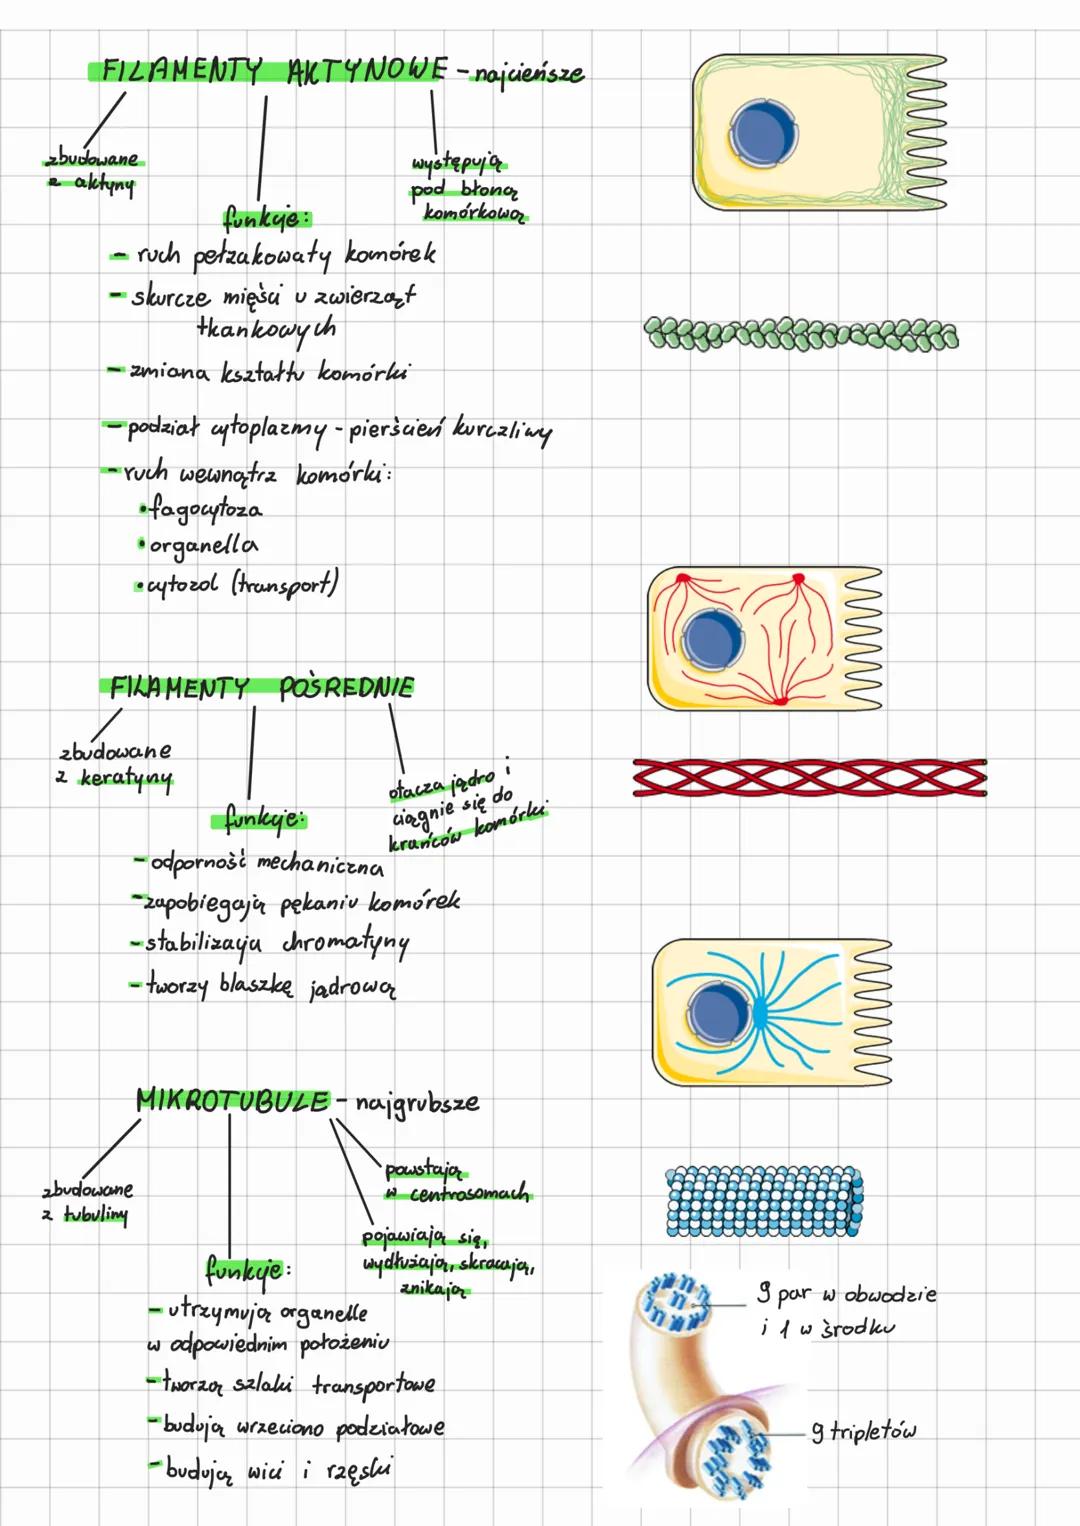 FILAMENTY AKTYNOWE - najcieńsze
zbudowane
z aktyny
występują
pod błoną
komórkową
funkcje:
- ruch pełzakowaty komórek
- skurcze mięśni u zwierząt
tkankowych
- zmiana kształtu komórki
- podział cytoplazmy - pierścień kurczliwy
- ruch wewnątrz komórki:
• fagocytoza
• organella
• cytozol (transport)
FILAMENTY POŚREDNIE
zbudowane
z keratyny
otacza jądro i
ciągnie się do
krańców komórki
funkcje:
- odporność mechaniczna
- zapobiegają pękaniu komórek
- stabilizacja chromatyny
- tworzy blaszkę jądrową
MIKROTUBULE - najgrubsze
zbudowane
z tubuliny
powstają
w centrosomach
pojawiają się,
wydłużają, skracają,
znikają
funkcje:
- utrzymują organelle
w odpowiednim położeniu
- tworzą szlaki transportowe
- budują wrzeciono podziałowe
- budują wici i rzęski
9 par w obwodzie
i 1 w środku
9 tripletów